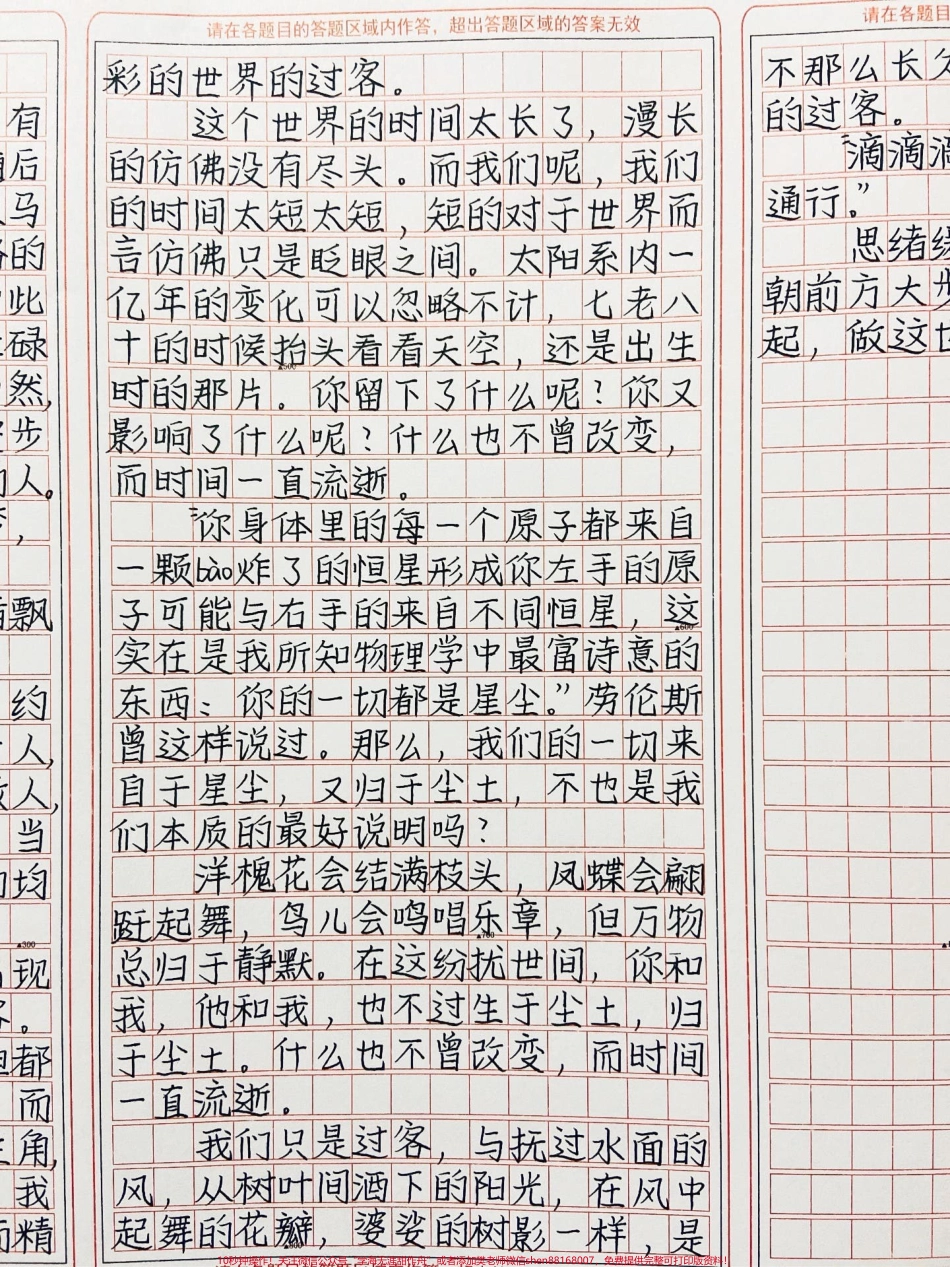 请在各题目的答题区域内作答，超出答题区域的答案无效
彩的世界的过客。
这个世界的时间太长了，漫长
的仿佛没有尽头。而我们呢，我们
的时间太短太短，短的对于世界而
言仿佛只是眨眼之间。太阳系内一
亿年的变化可以忽略不计，七老八
十的时候抬头看看天空，还是出生
▲500
时的那片。你留下了什么呢？你又
影响了什么呢？什么也不曾改变，
而时间一直流逝。
“你身体里的每一个原子都来自
一颗bào炸了的恒星形成你左手的原
子可能与右手的来自不同恒星，这
▲600
实在是我所知物理学中最富诗意的
东西：你的一切都是星尘。”劳伦斯
曾这样说过。那么，我们的一切来
自于星尘，又归于尘土，不也是我
们本质的最好说明吗？
洋槐花会结满枝头，凤蝶会翩
跹起舞，鸟儿会鸣唱乐章，但万物
▲700
总归于静默。在这纷扰世间，你和
我，他和我，也不过生于尘土，归
于尘土。什么也不曾改变，而时间
一直流逝。
我们只是过客，与抚过水面的
风，从树叶间洒下的阳光，在风中
起舞的花瓣，婆娑的树影一样，是
有
后
马
的
此
碌
然，
步
人。
，
飘
约
人，
人，
当
均
▲300
现
。
都
而
角，
我
精
请在各题目
不那么长久
的过客。
“滴滴滴
通行。”
思绪缘
朝前方大步
起，做这世